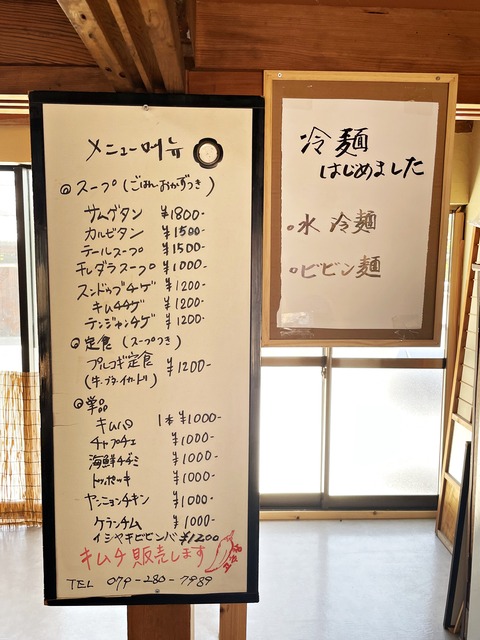 メニュー메뉴
◎スープ(ごはん・おかずつき)
サムゲタン ¥1800-
カルビタン ¥1500-
テールスープ ¥1500-
干しダラスープ ¥1000-
スンドゥブチゲ ¥1200-
キムチチゲ ¥1200-
テンジャンチゲ ¥1200-
◎定食(スープつき)
プルコギ定食 ¥1200-
(牛・ブタ・イカ・トリ)
◎単品
キムパ 1本 ¥1000-
チャプチェ ¥1000-
海鮮チヂミ ¥1000-
トッポッキ ¥1000-
ヤンニョンチキン ¥1000-
ケランチム ¥1000-
イシヤキビビンバ ¥1200
キムチ販売します
TEL 079-280-7989
冷麺
はじめました
●水冷麺
●ビビン麺